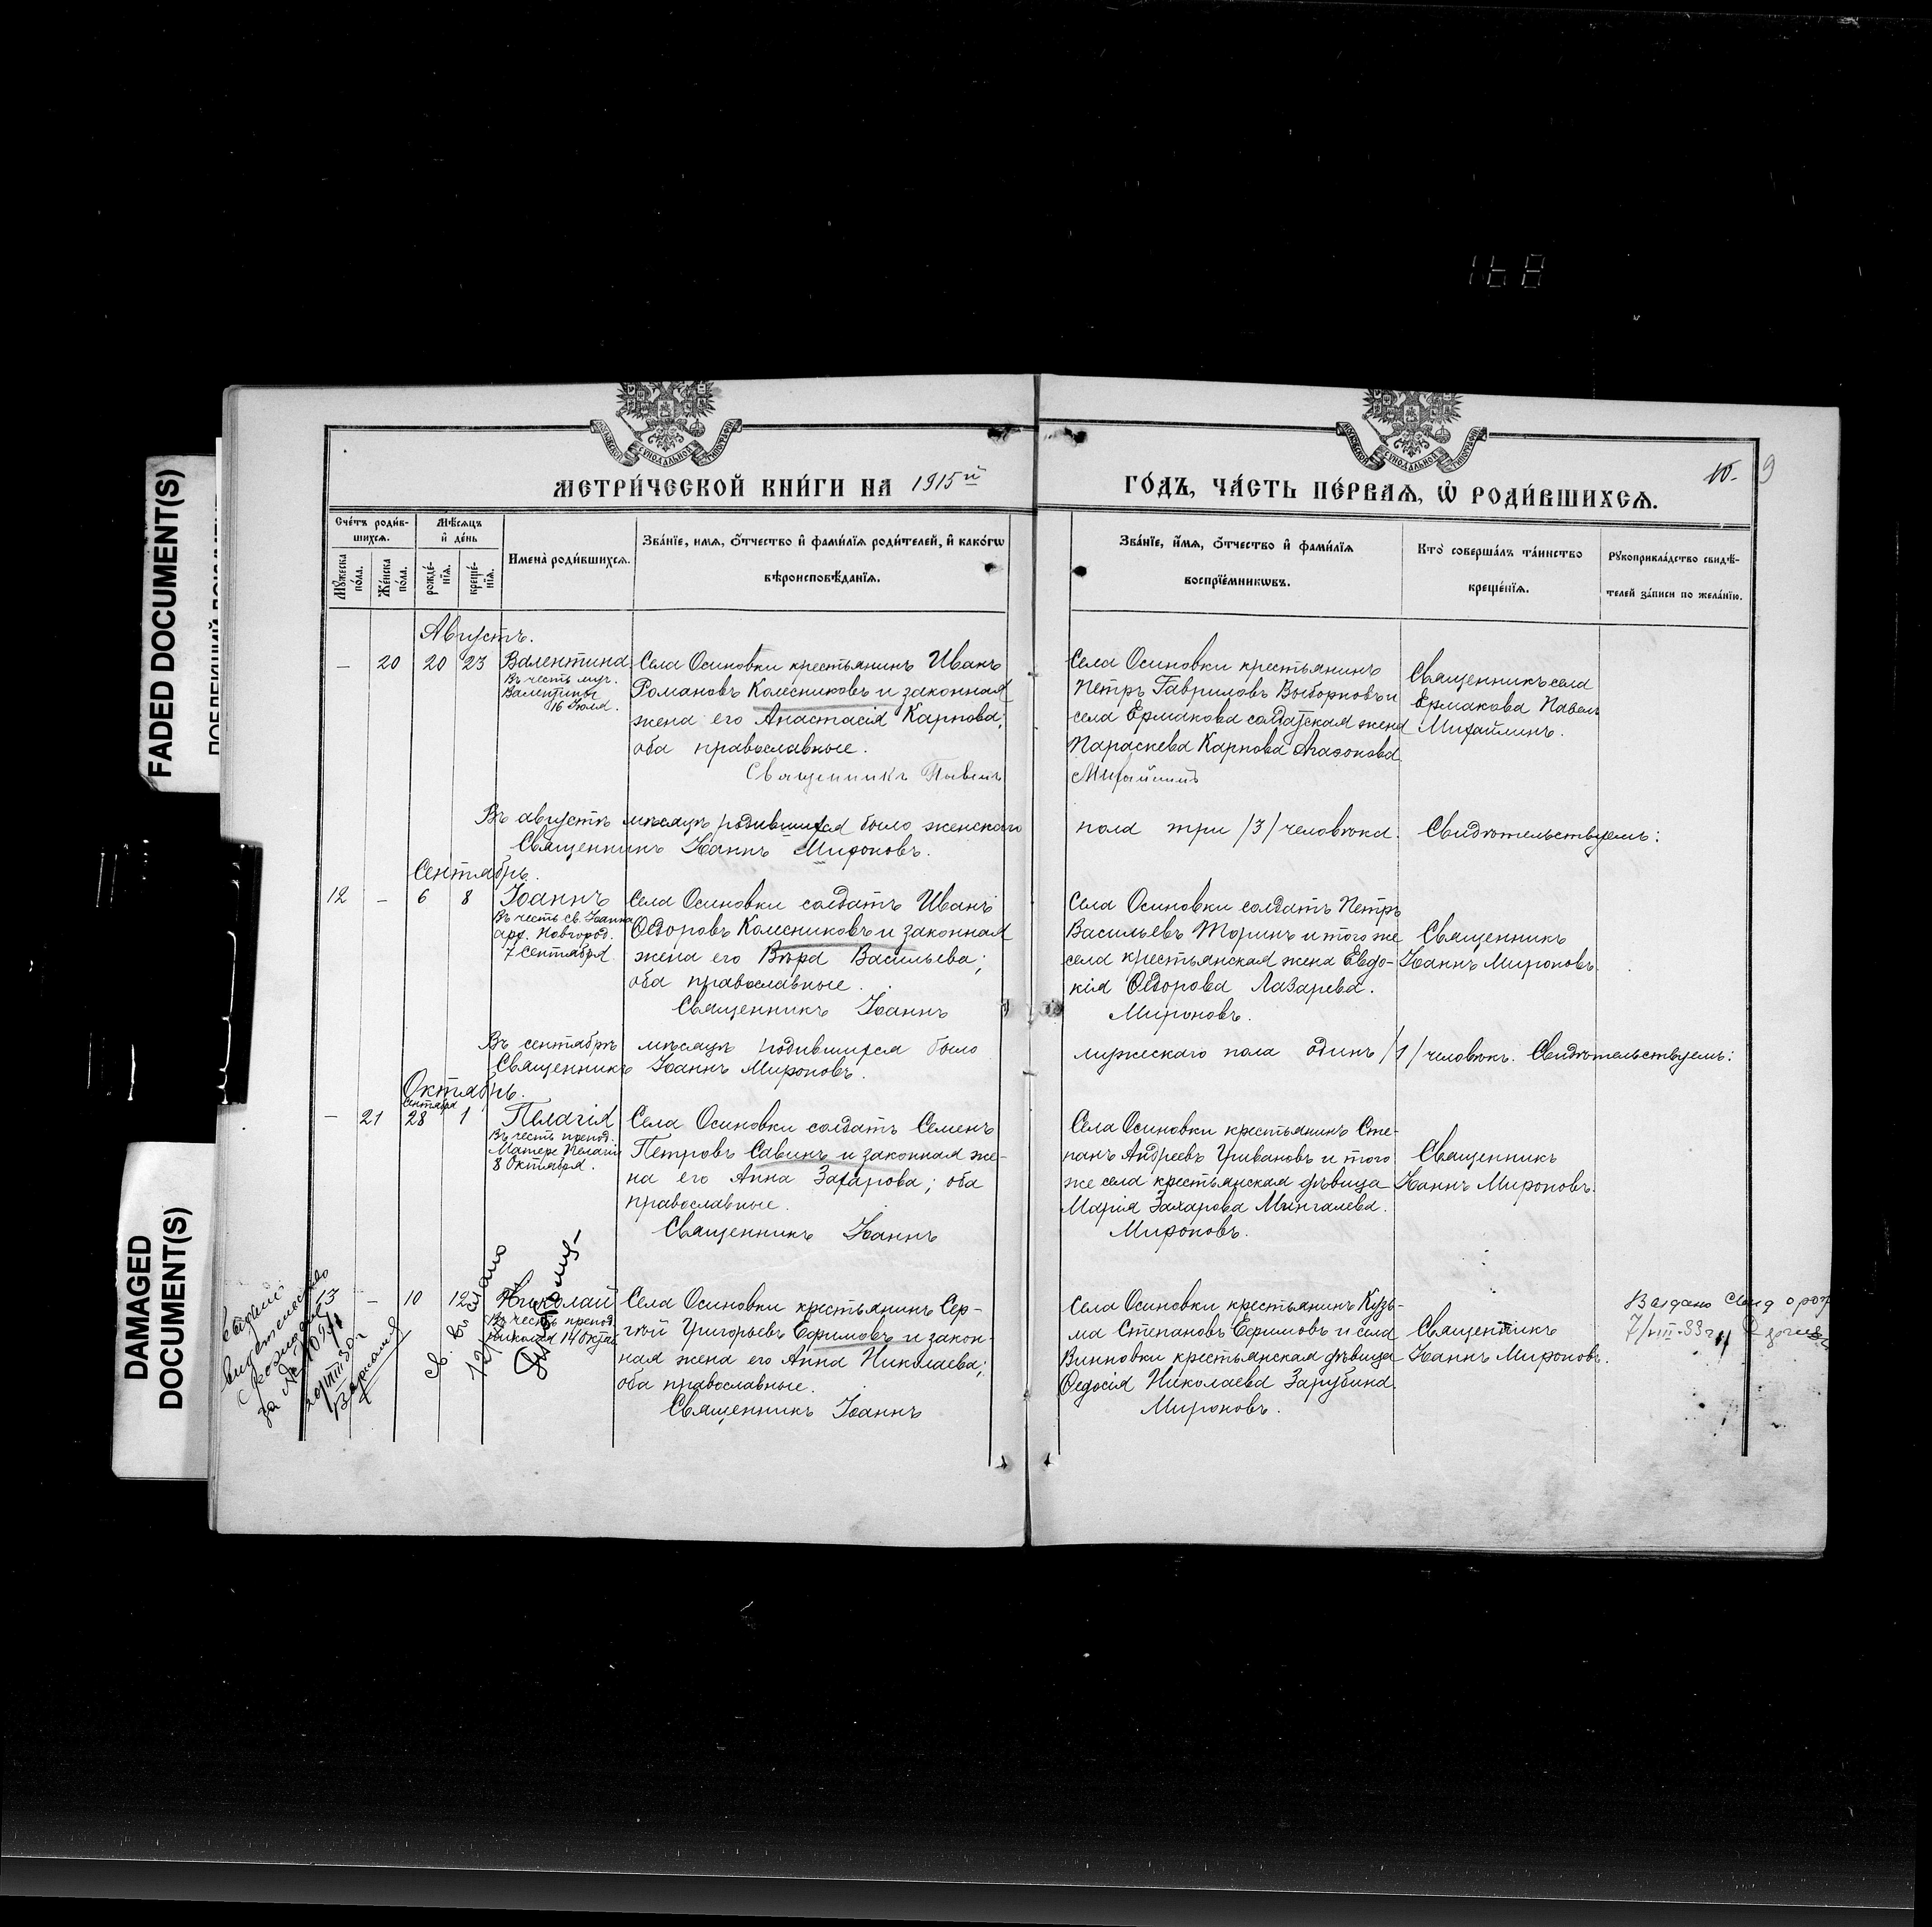 168
FADED DOCUMENT(S)
DAMAGED
DOCUMENT(S)
МЕТРИ́ЧЕСКОЙ КНИ́ГИ НА 1915й
ГО́ДЪ, ЧА́СТЬ ПЕ́РВАѦ, Ѡ҆ РОДИ́ВШИХСѦ.
10. 9
Сче́тъ роди́в-
шихсѧ.
Мꙋ́жеска
по́ла.
Же́нска
по́ла.
Мѣ́сѧцъ
и҆ де́нь
рожде́-
нїѧ.
креще́-
нїѧ.
Имена̀ роди́вшихсѧ.
Зва́нїе, имѧ, ѻ҆́тчество и҆ фами́лїѧ роди́телей, и҆ како́гѡ
вѣроисповѣ́данїѧ.
Зва́нїе, и҆́мѧ, ѻ҆́тчество и҆ фами́лїѧ
воспрїе́мникѡвъ.
Кто̀ соверша́лъ та́инство
креще́нїѧ.
Рꙋкоприкла́дство свидѣ́-
телей за́писи по жела́нїю.
Августъ.
— 20 20 23
Валентина
Въ честь муч.
Валентины
16 Юля.
Села Осиновки крестьянинъ Иванъ
Романовъ Колесниковъ и законная
жена его Анастасія Карпова;
оба православные.
Священникъ Павелъ
Села Осиновки крестьянинъ
Петръ Гавриловъ Выборновъ и
села Ермакова солдатская жена
Параскева Карпова Агафонова
Михайлинъ
Священникъ села
Ермакова Павелъ
Михайлинъ.
Въ августѣ мѣсяцѣ родившихся было женскаго пола три /3/ человѣка. Свидѣтельствуемъ:
Священникъ Іоаннъ Мироновъ.
Сентябрь.
12 — 6 8
Іоаннъ
Въ честь св. Іоанна
арх. Новгород.
7 Сентября
Села Осиновки солдатъ Иванъ
Ѳедоровъ Колесниковъ и законная
жена его Вѣра Васильева;
оба православные.
Священникъ Іоаннъ
Села Осиновки солдатъ Петръ
Васильевъ Торинъ и того же
села крестьянская жена Евдо-
кія Ѳедорова Лазарева.
Мироновъ.
Священникъ
Іоаннъ Мироновъ.
Въ сентябрѣ мѣсяцѣ родившихся было мужескаго пола одинъ /1/ человѣкъ. Свидѣтельствуемъ:
Священникъ Іоаннъ Мироновъ.
Октябрь.
сентября
— 21 28 1
Пелагія
Въ честь препод.
Матере Пелагіи
8 Октября.
Села Осиновки солдатъ Семенъ
Петровъ Савинъ и законная же-
на его Анна Захарова; оба
православные.
Священникъ Іоаннъ
Села Осиновки крестьянинъ Сте-
панъ Андреевъ Уривановъ и того
же села крестьянская дѣвица
Марія Захарова Мингалева.
Мироновъ.
Священникъ
Іоаннъ Мироновъ.
13 — 10 12
Николай
Въ честь препод.
Николая 14 Октяб
Села Осиновки крестьянинъ Сер-
гѣй Григорьевъ Ефимовъ и закон-
ная жена его Анна Николаева;
оба православные.
Священникъ Іоаннъ
Села Осиновки крестьянинъ Кузь-
ма Степановъ Ефимовъ и села
Винновки крестьянская дѣвица
Ѳедосія Николаева Зарубина.
Мироновъ.
Священникъ
Іоаннъ Мироновъ.
Выдано свид о рож
7/VIII-33г